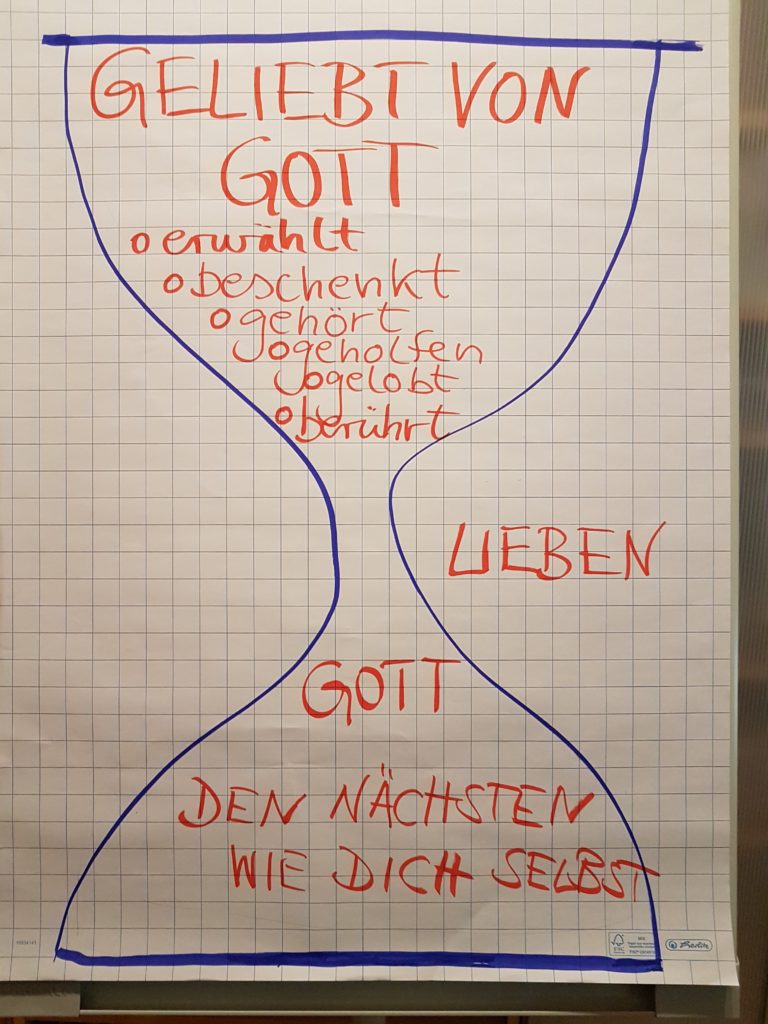 GELIEBT VON
GOTT
o erwählt
o beschenkt
o gehört
o geholfen
o gelobt
o berührt
LIEBEN
GOTT
DEN NÄCHSTEN
WIE DICH SELBST
FSC
MIX
Berlin